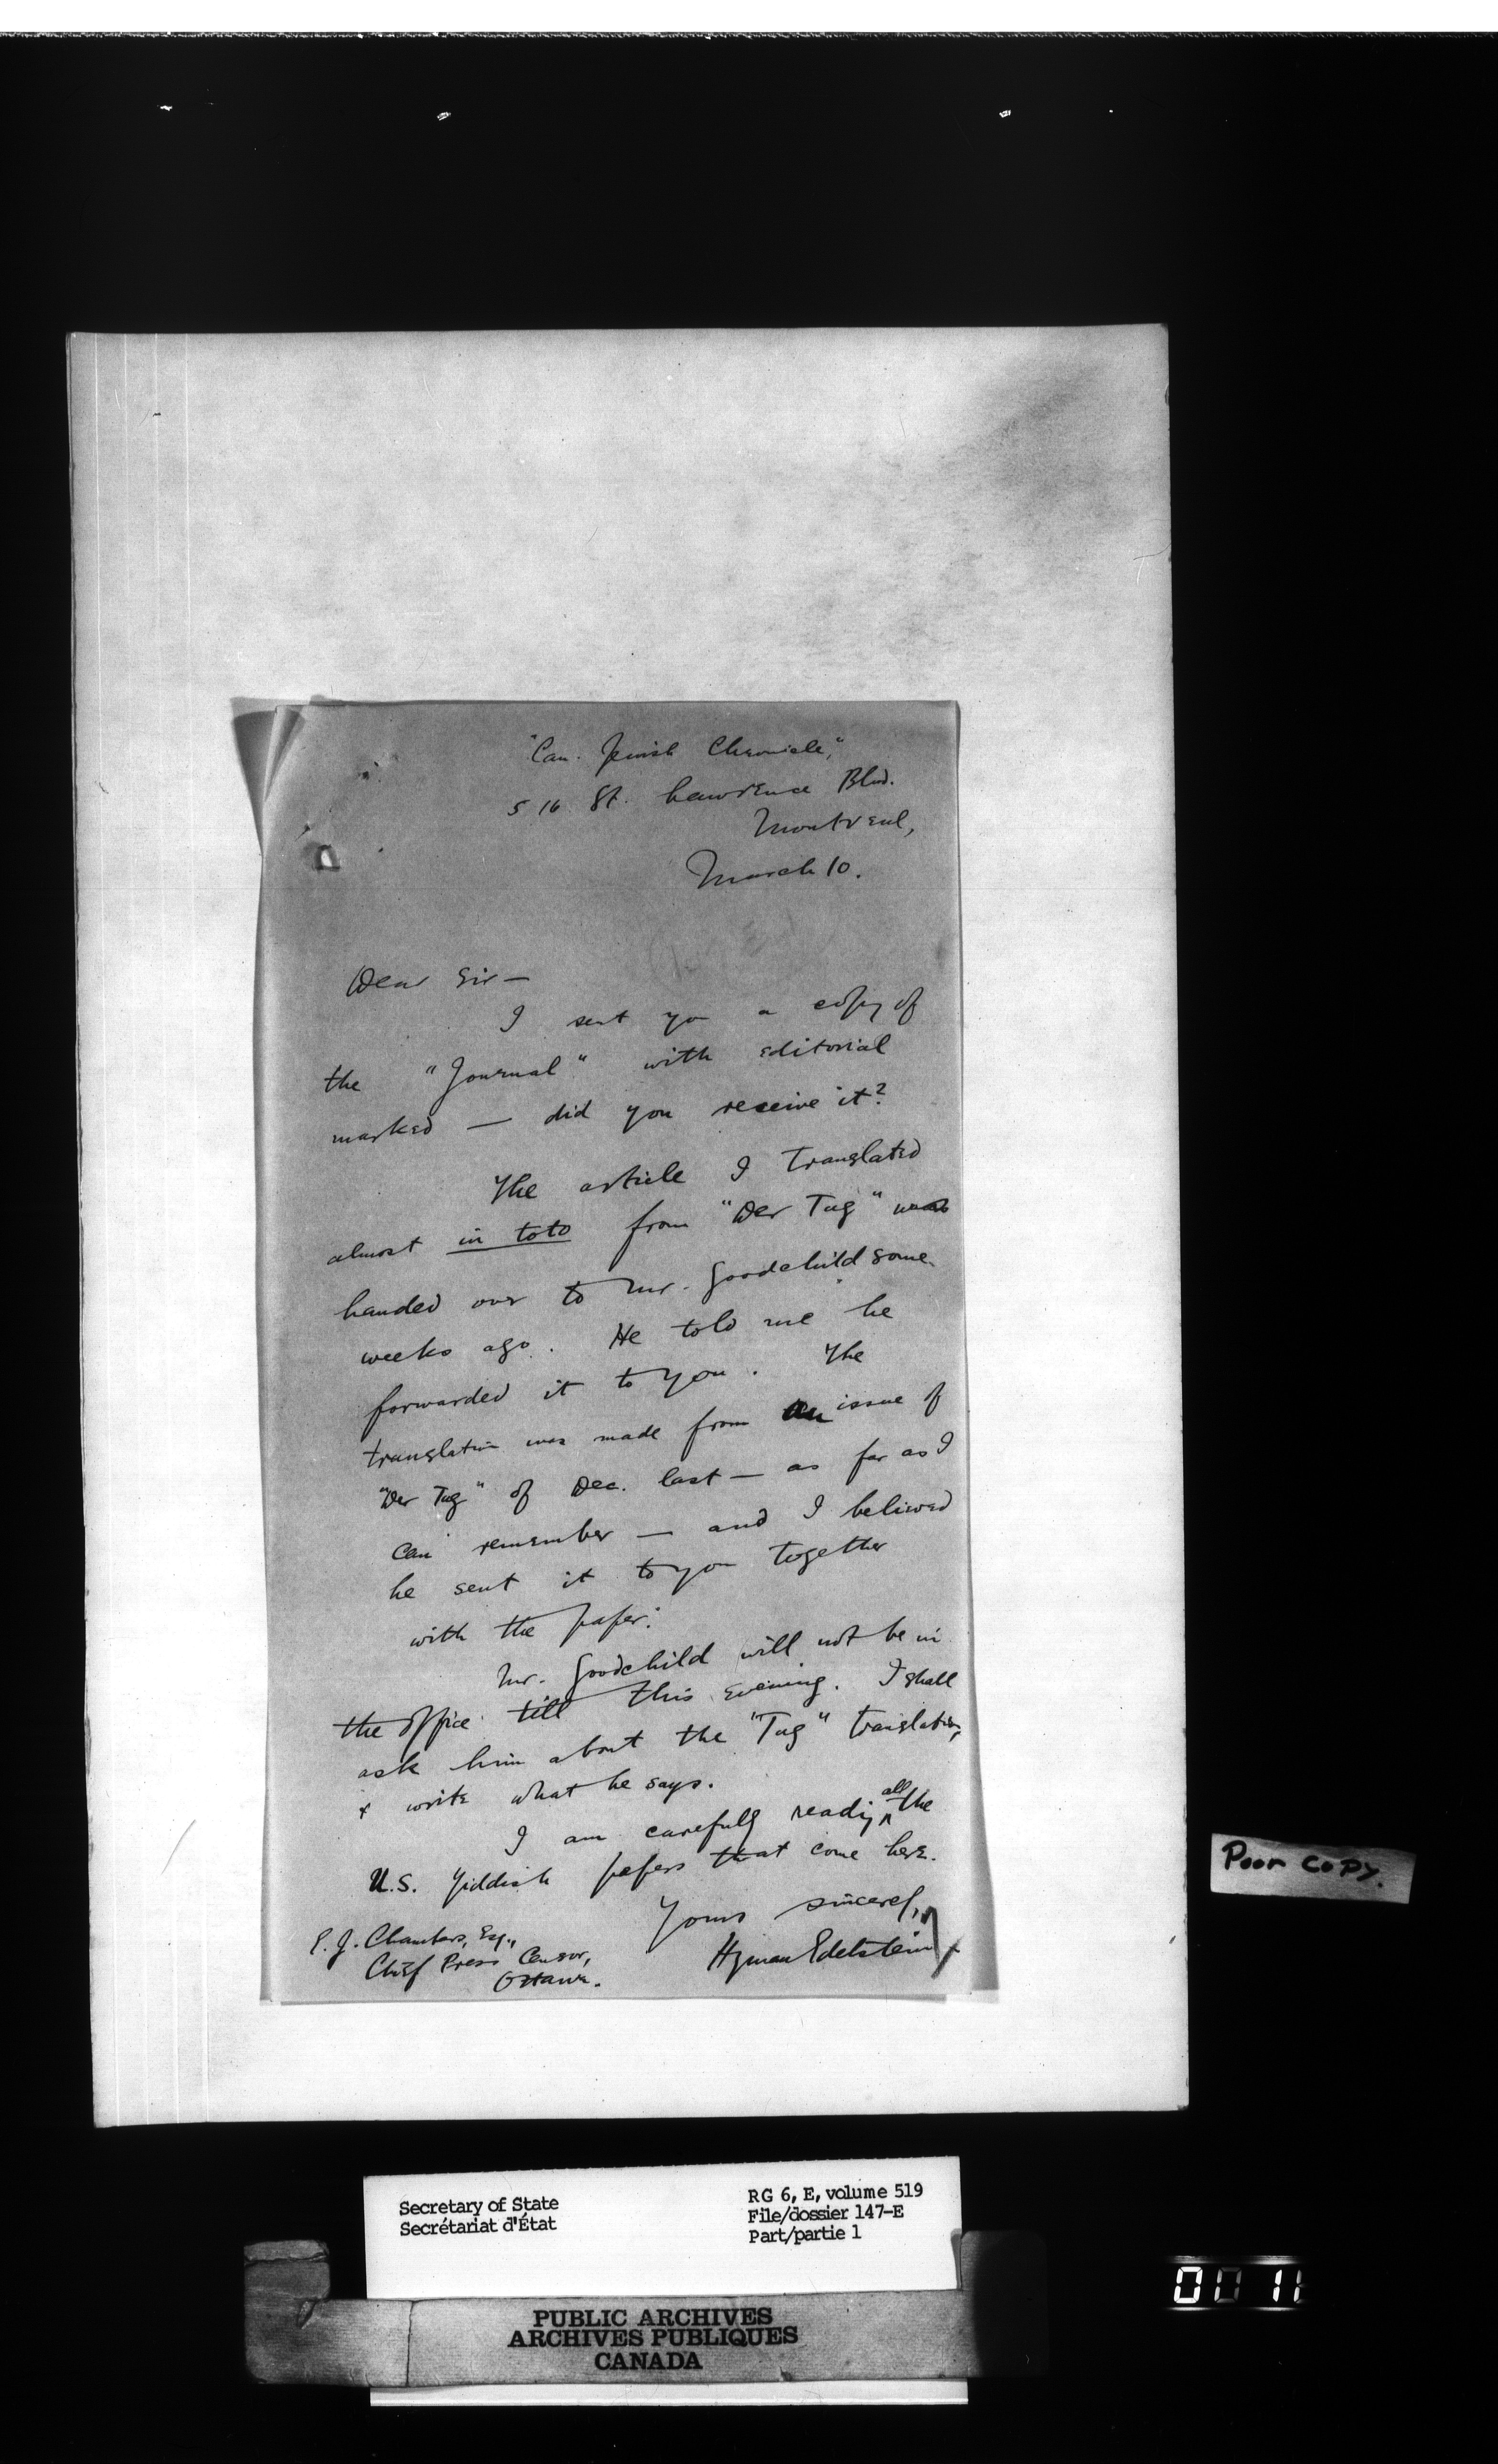 "Can. Jewish Chronicle,"
516 St. Lawrence Blvd.
Montreal,
March 10.
Dear Sir —
I sent you a copy of
the "Journal" with editorial
marked — did you receive it?
The article I translated
almost in toto from "Der Tag" was
handed over to Mr. Goodchild some
weeks ago. He told me he
forwarded it to you. The
translation was made from an issue of
"Der Tag" of Dec. last — as far as I
can remember — and I believed
he sent it to you together
with the paper.
Mr. Goodchild will not be in
the office till this evening. I shall
ask him about the "Tag" translation,
& write what he says.
I am carefully readig all the
U.S. Yiddish papers that come here.
Yours sincerely,
Hyman Edelstein
E. J. Chambers, Esq.,
Chief Press Censor,
Ottawa.
Poor copy.
Secretary of State
Secrétariat d'État
RG 6, E, volume 519
File/dossier 147-E
Part/partie 1
PUBLIC ARCHIVES
ARCHIVES PUBLIQUES
CANADA
0011